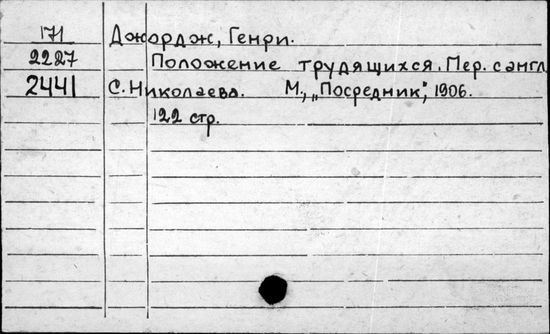 171 Джордж, Генри.
2227 Положение трудящихся. Пер. с англ
2441 С. Николаева. М., „Посредник“, 1906.
122 стр.